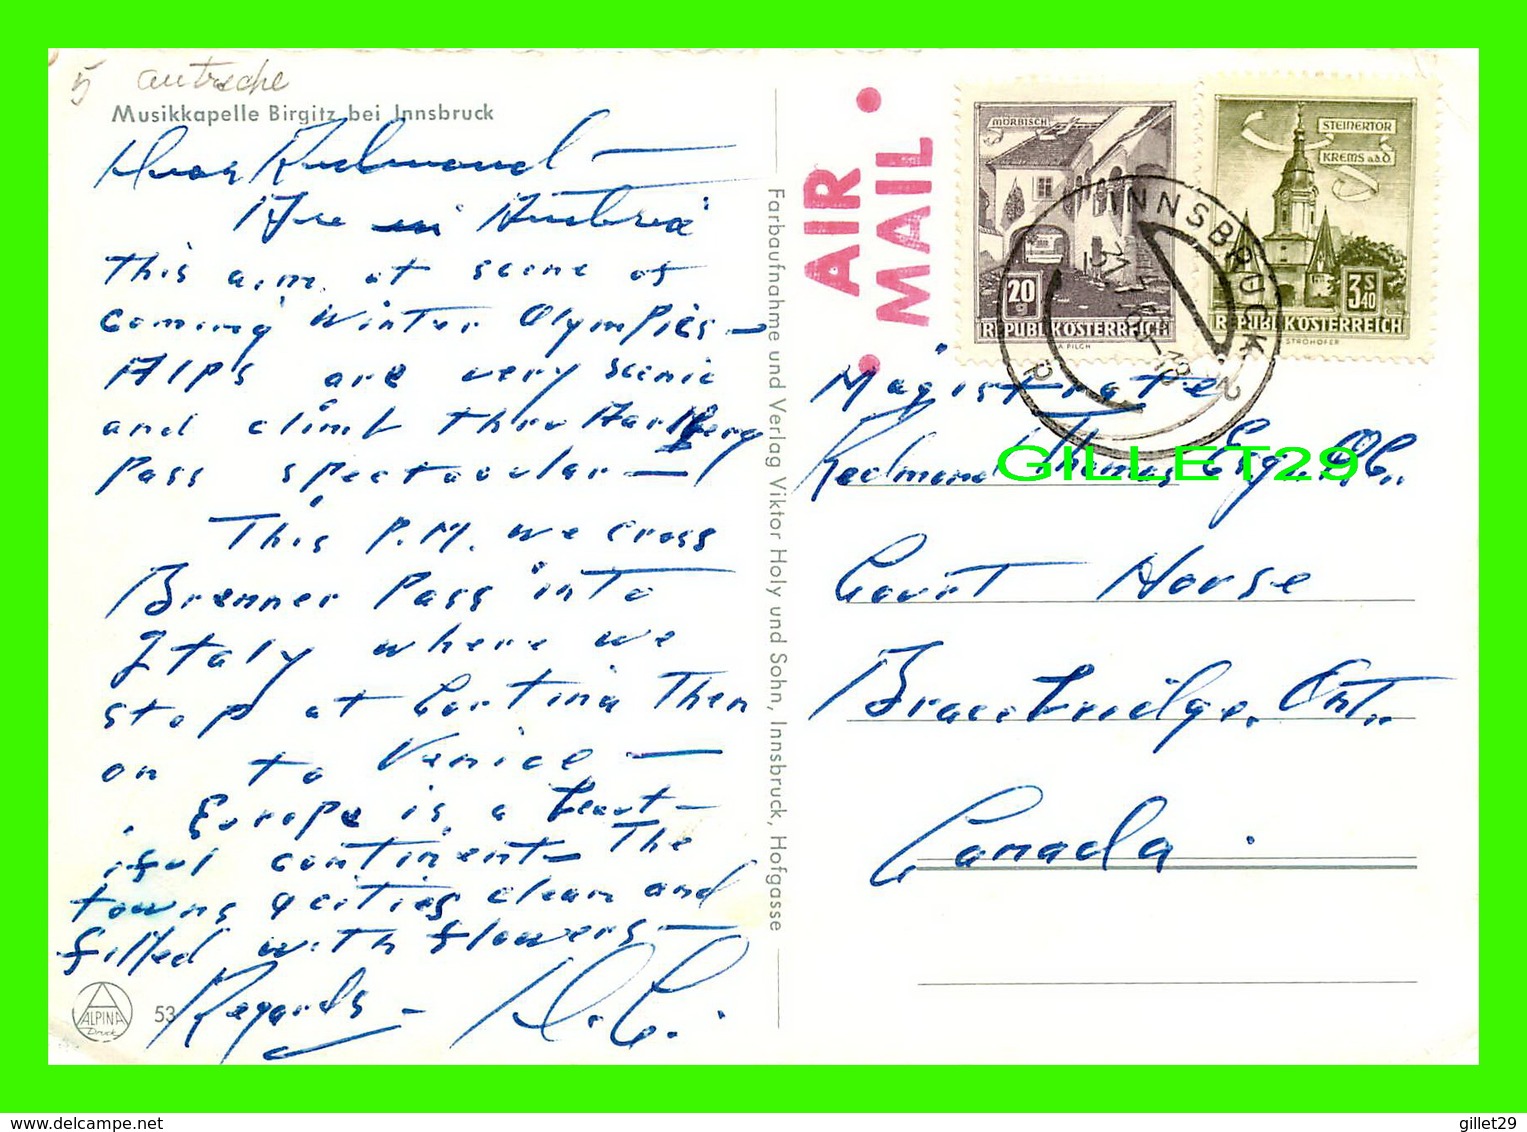 5 autriche
Musikkapelle Birgitz bei Innsbruck
Dear Redmond —
Are in Austria
this a.m. at scene of
coming Winter Olympics —
Alps are very scenic
and climb thru Aarlberg
Pass spectacular —
This P.M. we cross
Brenner Pass into
Italy where we
stop at Cortina Then
on to Venice —
Europe is a beaut-
iful continent — The
towns & cities clean and
filled with flowers —
Regards —
ALPINA
Druck
53
Farbaufnahme und Verlag Viktor Holy und Sohn, Innsbruck, Hofgasse
AIR
MAIL
MÖRBISCH
20
g
REPUBLIK ÖSTERREICH
A PILCH
STEINERTOR
KREMS a.d.D
3 S 40
REPUBLIK ÖSTERREICH
STROHOFER
INNSBRUCK 2
Magistrate
Redmond Thomas Esq. Q.C.,
GILLET29
Court House
Bracebridge, Ont.
Canada.
Copyright delcampe.net
gillet29